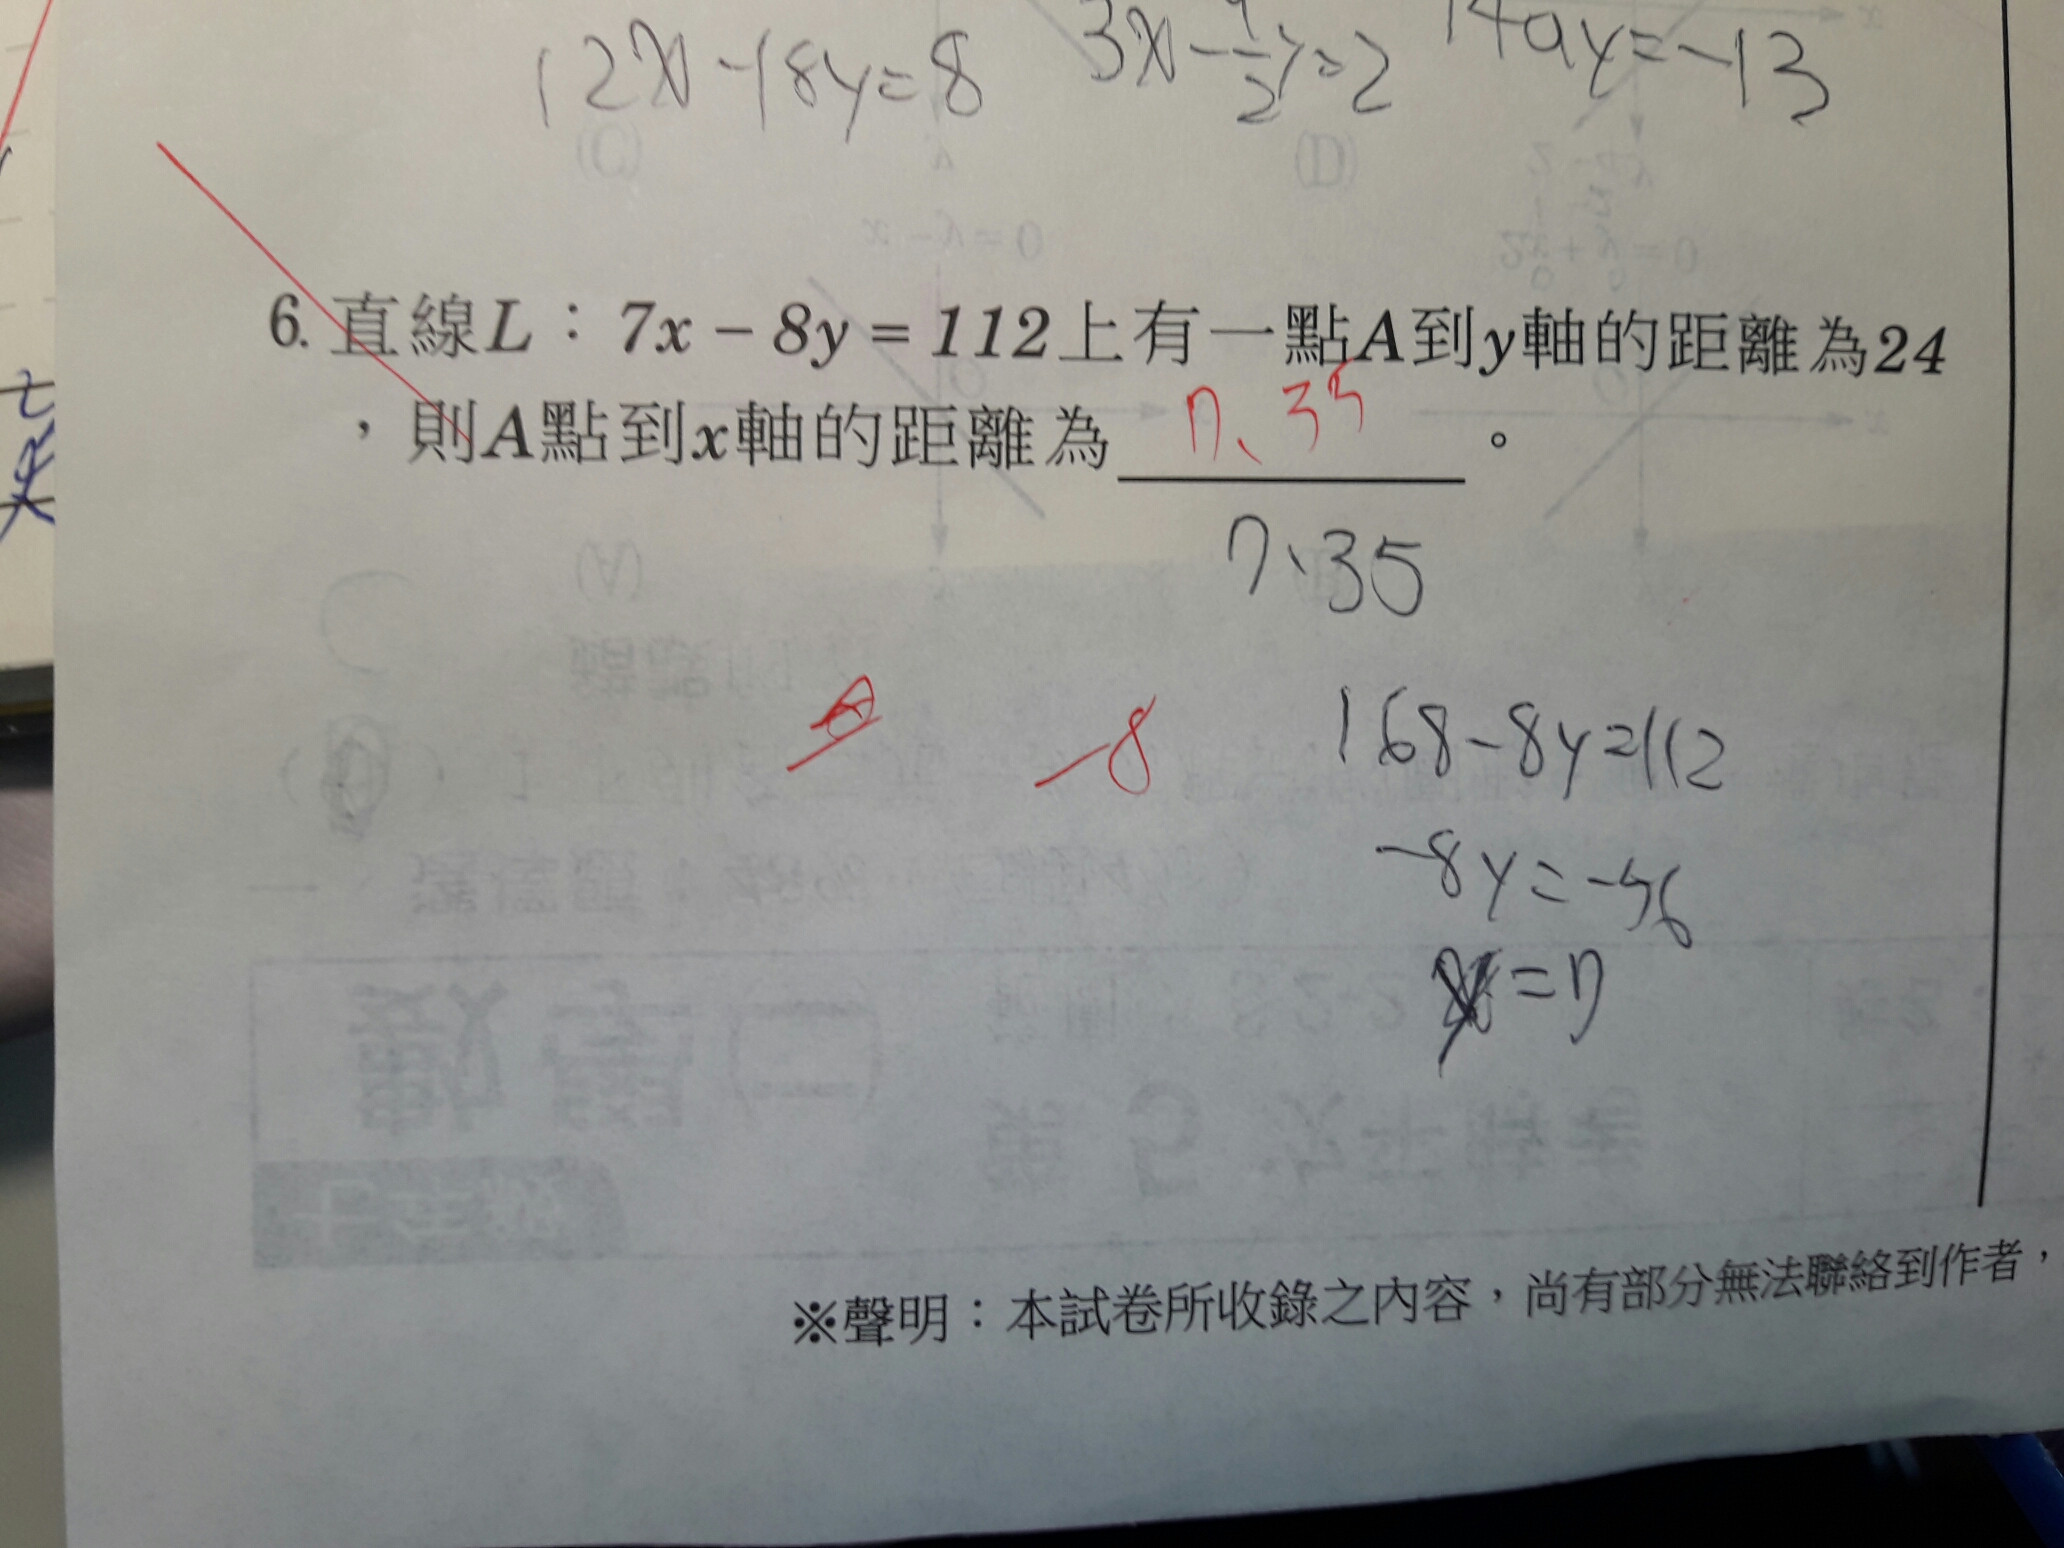 12x-18y=8
3x-9/2y=2
14ay=-13
6. 直線L：7x－8y＝112上有一點A到y軸的距離為24
，則A點到x軸的距離為 7、35 。
7、35
-8
168-8y=112
-8y=-56
y=7
※聲明：本試卷所收錄之內容，尚有部分無法聯絡到作者，